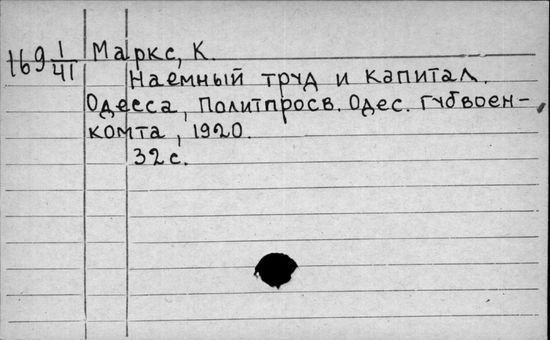 169 1/41 Маркс, К.
Наемный труд и капитал.
Одесса, Политпросв. Одес. губвоен-
комта, 1920.
32 с.